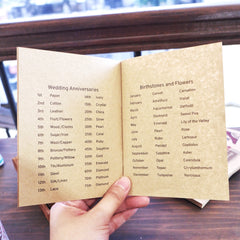 Wedding Anniversaries
1st Paper 14th Ivory
2nd Cotton 15th Crystal
3rd Leather 20th China
4th Fruit/Flowers 25th Silver
5th Wood/Clocks 30th Pearl
6th Sugar/Iron 35th Coral
7th Wool/Copper 40th Ruby
8th Bronze/Pottery 45th Sapphire
9th Pottery/Willow 50th Gold
10th Tin/Aluminium 55th Emerald
11th Steel 60th Diamond
12th Silk/Linen 75th Diamond
13th Lace
Birthstones and Flowers
January Garnet Carnation
February Amethyst Violet
March Aquamarine Daffodil
April Diamond Sweet Pea
May Emerald Lily of the Valley
June Pearl Rose
July Ruby Larkspur
August Peridot Gladiolus
September Sapphire Aster
October Opal Calendula
November Topaz Chrysanthemum
December Turquoise Narcissus